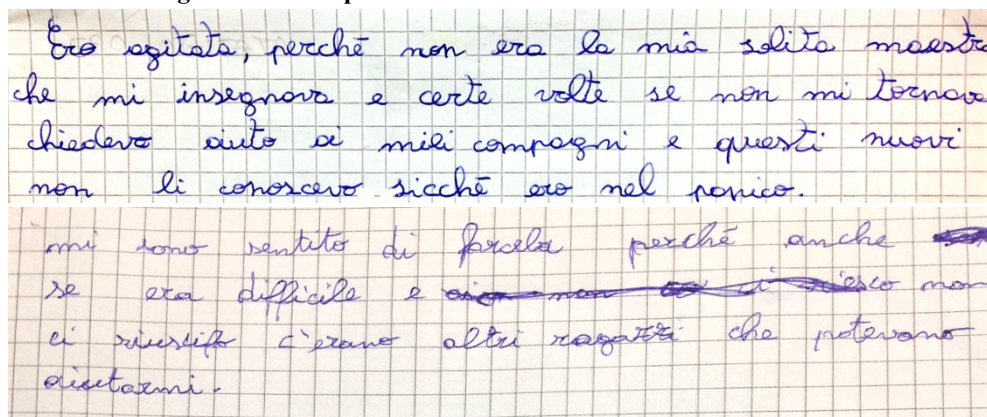 Ero agitata, perchē non era la mia solita maestra
che mi insegnava e certe volte se non mi tornava
chiedevo aiuto ai miei compagni e questi nuovi
non li conoscevo sicchē ero nel panico.
mi sono sentito di farcela perché anche
se era difficile e non
ci c'erano altri ragazzi che potevano
aiutarmi.